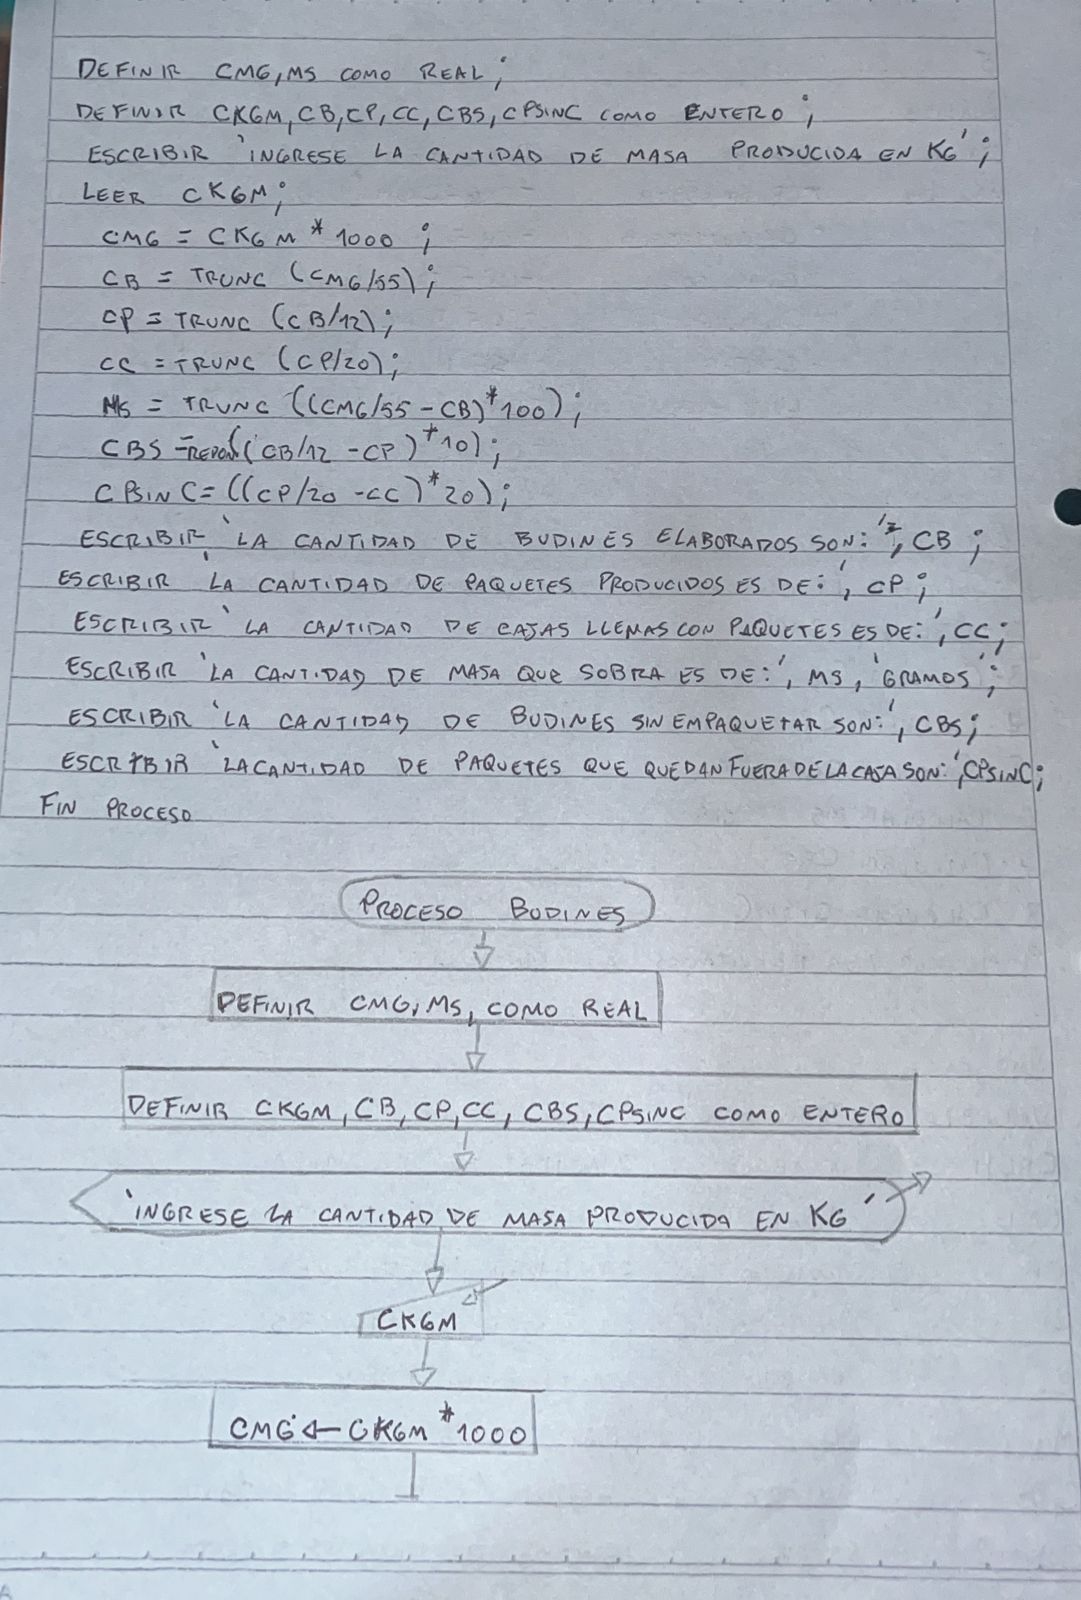 DEFINIR CMG, MS COMO REAL;
DEFINIR CKGM, CB, CP, CC, CBS, CPSINC COMO ENTERO;
ESCRIBIR 'INGRESE LA CANTIDAD DE MASA PRODUCIDA EN KG';
LEER CKGM;
CMG = CKGM * 1000;
CB = TRUNC (CMG/55);
CP = TRUNC (CB/12);
CC = TRUNC (CP/20);
MS = TRUNC ((CMG/55 - CB)*100);
CBS = REDON((CB/12 - CP)*10);
CPSINC = ((CP/20 - CC)*20);
ESCRIBIR 'LA CANTIDAD DE BUDINES ELABORADOS SON:', CB;
ESCRIBIR 'LA CANTIDAD DE PAQUETES PRODUCIDOS ES DE:', CP;
ESCRIBIR 'LA CANTIDAD DE CAJAS LLENAS CON PAQUETES ES DE:', CC;
ESCRIBIR 'LA CANTIDAD DE MASA QUE SOBRA ES DE:', MS, 'GRAMOS';
ESCRIBIR 'LA CANTIDAD DE BUDINES SIN EMPAQUETAR SON:', CBS;
ESCRIBIR 'LA CANTIDAD DE PAQUETES QUE QUEDAN FUERA DE LA CAJA SON:', CPSINC;
FIN PROCESO
PROCESO BUDINES
DEFINIR CMG, MS, COMO REAL
DEFINIR CKGM, CB, CP, CC, CBS, CPSINC COMO ENTERO
'INGRESE LA CANTIDAD DE MASA PRODUCIDA EN KG'
CKGM
CMG ← CKGM * 1000